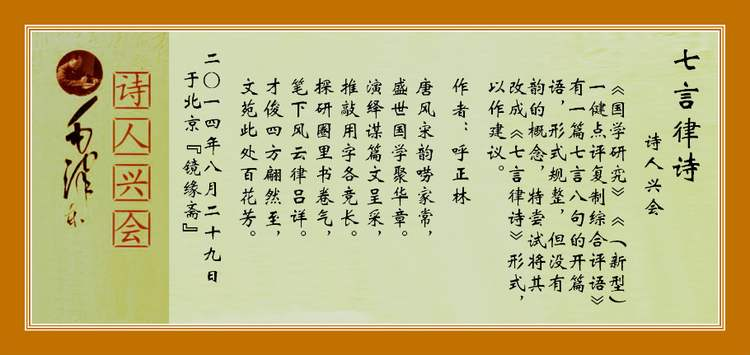 七言律诗
诗人兴会
《国学研究》《(新型)
一健点评复制综合评语》
有一篇七言八句的开篇
语，形式规整，但没有
韵的概念，特尝试将其
改成《七言律诗》形式，
以作建议。
作者：呼正林
唐风宋韵唠家常，
盛世国学聚华章。
演绎谋篇文呈采，
推敲用字各竞长。
探研圈里书卷气，
笔下风云律吕详。
才俊四方翩然至，
文苑此处百花芳。
二〇一四年八月二十九日
于北京『镜缘斋』
诗人兴会
毛泽东